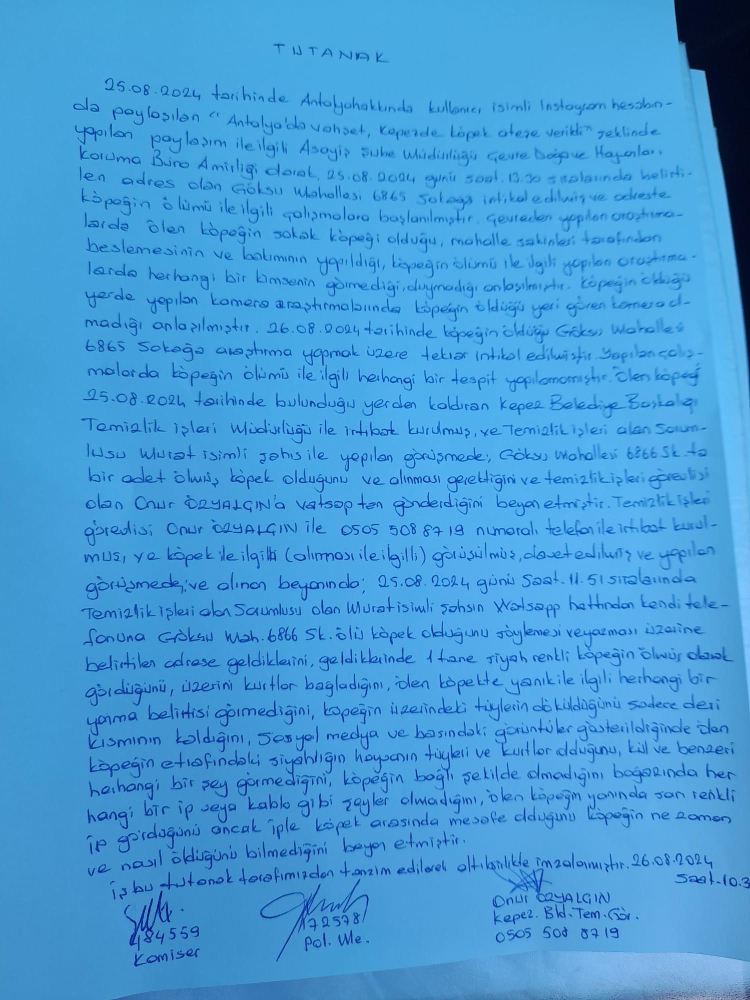 TUTANAK
25.08.2024 tarihinde Antalyahakkında kullanıcı isimli Instagram hesabın-
da paylaşılan "Antalya'da vahşet, Kepezde köpek ateşe verildi" şeklinde
yapılan paylaşım ile ilgili Asayiş Şube Müdürlüğü Çevre Doğa ve Hayvanları
Koruma Büro Amirliği olarak, 25.08.2024 günü saat 13.30 sıralarında belirti-
len adres olan Göksu Mahallesi 6865 Sokağa intikal edilmiş ve adreste
köpeğin ölümü ile ilgili çalışmalara başlanılmıştır. Çevreden yapılan araştırma-
larda ölen köpeğin sokak köpeği olduğu, mahalle sakinleri tarafından
beslemesinin ve bakımının yapıldığı, köpeğin ölümü ile ilgili yapılan araştırma-
larda herhangi bir kimsenin görmediği, duymadığı anlaşılmıştır. Köpeğin öldüğü
yerde yapılan kamera araştırmalarında köpeğin öldüğü yeri gören kamera ol-
madığı anlaşılmıştır. 26.08.2024 tarihinde köpeğin öldüğü Göksu Mahallesi
6865 Sokağa araştırma yapmak üzere tekrar intikal edilmiştir. Yapılan çalış-
malarda köpeğin ölümü ile ilgili herhangi bir tespit yapılamamıştır. Ölen köpeği
25.08.2024 tarihinde bulunduğu yerden kaldıran Kepez Belediye Başkalığı
Temizlik işleri Müdürlüğü ile irtibat kurulmuş, ve Temizlik işleri alan Sorum-
lusu Murat isimli şahıs ile yapılan görüşmede; Göksu Mahallesi 6866 Sk. ta
bir adet ölmüş köpek olduğunu ve alınması gerektiğini ve temizlik işleri görevlisi
olan Onur ÖZYALGIN'a vatsap ten gönderdiğini beyan etmiştir. Temizlik işleri
görevlisi Onur ÖZYALGIN ile 0505 508 8719 numaralı telefon ile irtibat kurul-
muş, ve köpek ile ilgili (alınması ile ilgili) görüşülmüş, davet edilmiş ve yapılan
görüşmede; ve alınan beyanında; 25.08.2024 günü Saat. 11.51 sıralarında
Temizlik işleri alan Sorumlusu olan Murat isimli şahsın Watsapp hattından kendi tele-
fonuna Göksu Mah. 6866 Sk. ölü köpek olduğunu söylemesi veyazması üzerine
belirtilen adrese geldiklerini, geldiklerinde 1 tane siyah renkli köpeğin ölmüş olarak
gördüğünü, üzerini kurtlar bağladığını, ölen köpekte yanık ile ilgili herhangi bir
yanma belirtisi görmediğini, köpeğin üzerindeki tüylerin döküldüğünü sadece deri
kısmının kaldığını, sosyal medya ve basındaki görüntüler gösterildiğinde ölen
köpeğin etrafındaki siyahlığın hayvanın tüyleri ve kurtlar olduğunu, kül ve benzeri
herhangi bir şey görmediğini, köpeğin bağlı şekilde olmadığını boğazında her
hangi bir ip veya kablo gibi şeyler olmadığını, ölen köpeğin yanında sarı renkli
ip gördüğünü ancak iple köpek arasında mesafe olduğunu köpeğin ne zaman
ve nasıl öldüğünü bilmediğini beyan etmiştir.
iş bu tutanak tarafımızdan tanzim edilerek altı birlikte imzalanmıştır. 26.08.2024
Saat. 10.3
484559
Komiser
472578
Pol. Me.
Onur ÖZYALGIN
Kepez. Bld. Tem. Gör.
0505 508 8719